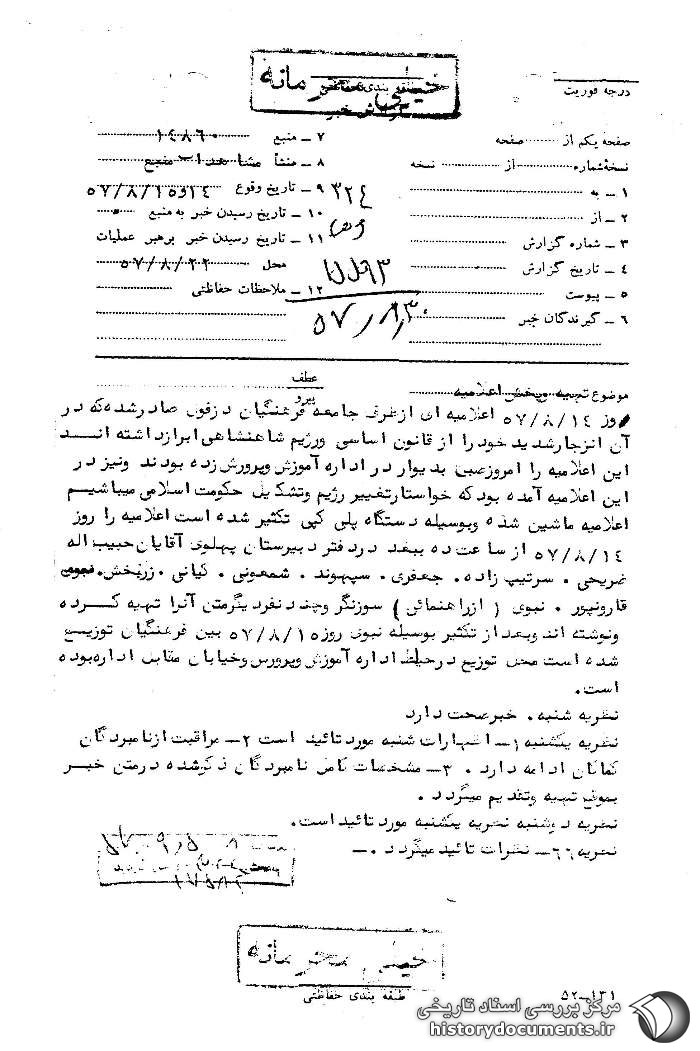 خیلی محرمانه
طبقه بندی حفاظتی
گزارش خبر
درجه فوریت
صفحه یکم از صفحه
نسخه شماره از نسخه
۱ - به ۳۲۴
۲ - از
۳ - شماره گزارش
۴ - تاریخ گزارش
۵ - پیوست
۶ - گیرندگان خبر
۷ - منبع ۱۴۸۶۰
۸ - منشأ مشاهدات منبع
۹ - تاریخ وقوع ۱۴و۵۷/۸/۱۵
۱۰ - تاریخ رسیدن خبر به منبع
۱۱ - تاریخ رسیدن خبر برهبر عملیات
محل ۵۷/۸/۲۲
۱۲ - ملاحظات حفاظتی
موضوع تهیه وپخش اعلامیه
عطف
پیرو
روز ۵۷/۸/۱۴ اعلامیه ای ازطرف جامعه فرهنگیان دزفول صادرشده که در
آن انزجارشدید خود را از قانون اساسی ورژیم شاهنشاهی ابرازداشته انـد
این اعلامیه را امروزصبح بدیوار در اداره آموزش وپرورش زده بودند ونیز در
این اعلامیه آمده بود که خواستارتغییر رژیم وتشکیل حکومت اسلامی میباشیم
اعلامیه ماشین شده وبوسیله دستگاه پلی کپی تکثیر شده است اعلامیه را روز
۵۷/۸/۱۴ از ساعت ده ببعد دردفتر دبیرستان پهلوی آقایان حبیب اله
ضریحی . سرتیپ زاده . جعفری . سپهوند . شمعونی . کیانی . زربخش . نبوی
قارونپور . نبوی (ازراهنمائی) سوزنگر وچند نفردیگرمتن آنرا تهیه کـرده
ونوشته اند وبعداز تکثیر بوسیله نبوی روز ۵۷/۸/۱۵ بین فرهنگیان توزیـع
شده است محل توزیع درحیاط اداره آموزش وپرورش وخیابان مقابل اداره بوده
است .
نظریه شنبه . خبرصحت دارد
نظریه یکشنبه ۱- اظهارات شنبه مورد تائید است ۲- مراقبت ازنامبردگان
کماکان ادامه دارد . ۳- مشخصات کامل نامبردگان ذکرشده درمتن خبـر
بموقع تهیه وتقدیم میگردد .
نظریه دوشنبه نظریه یکشنبه مورد تائیداست .
نظریه ۶۶- نظرات تائید میگردد . -
خیلی محرمانه
طبقه بندی حفاظتی
۵۲-۱۳۱
مرکز بررسی اسناد تاریخی
historydocuments.ir